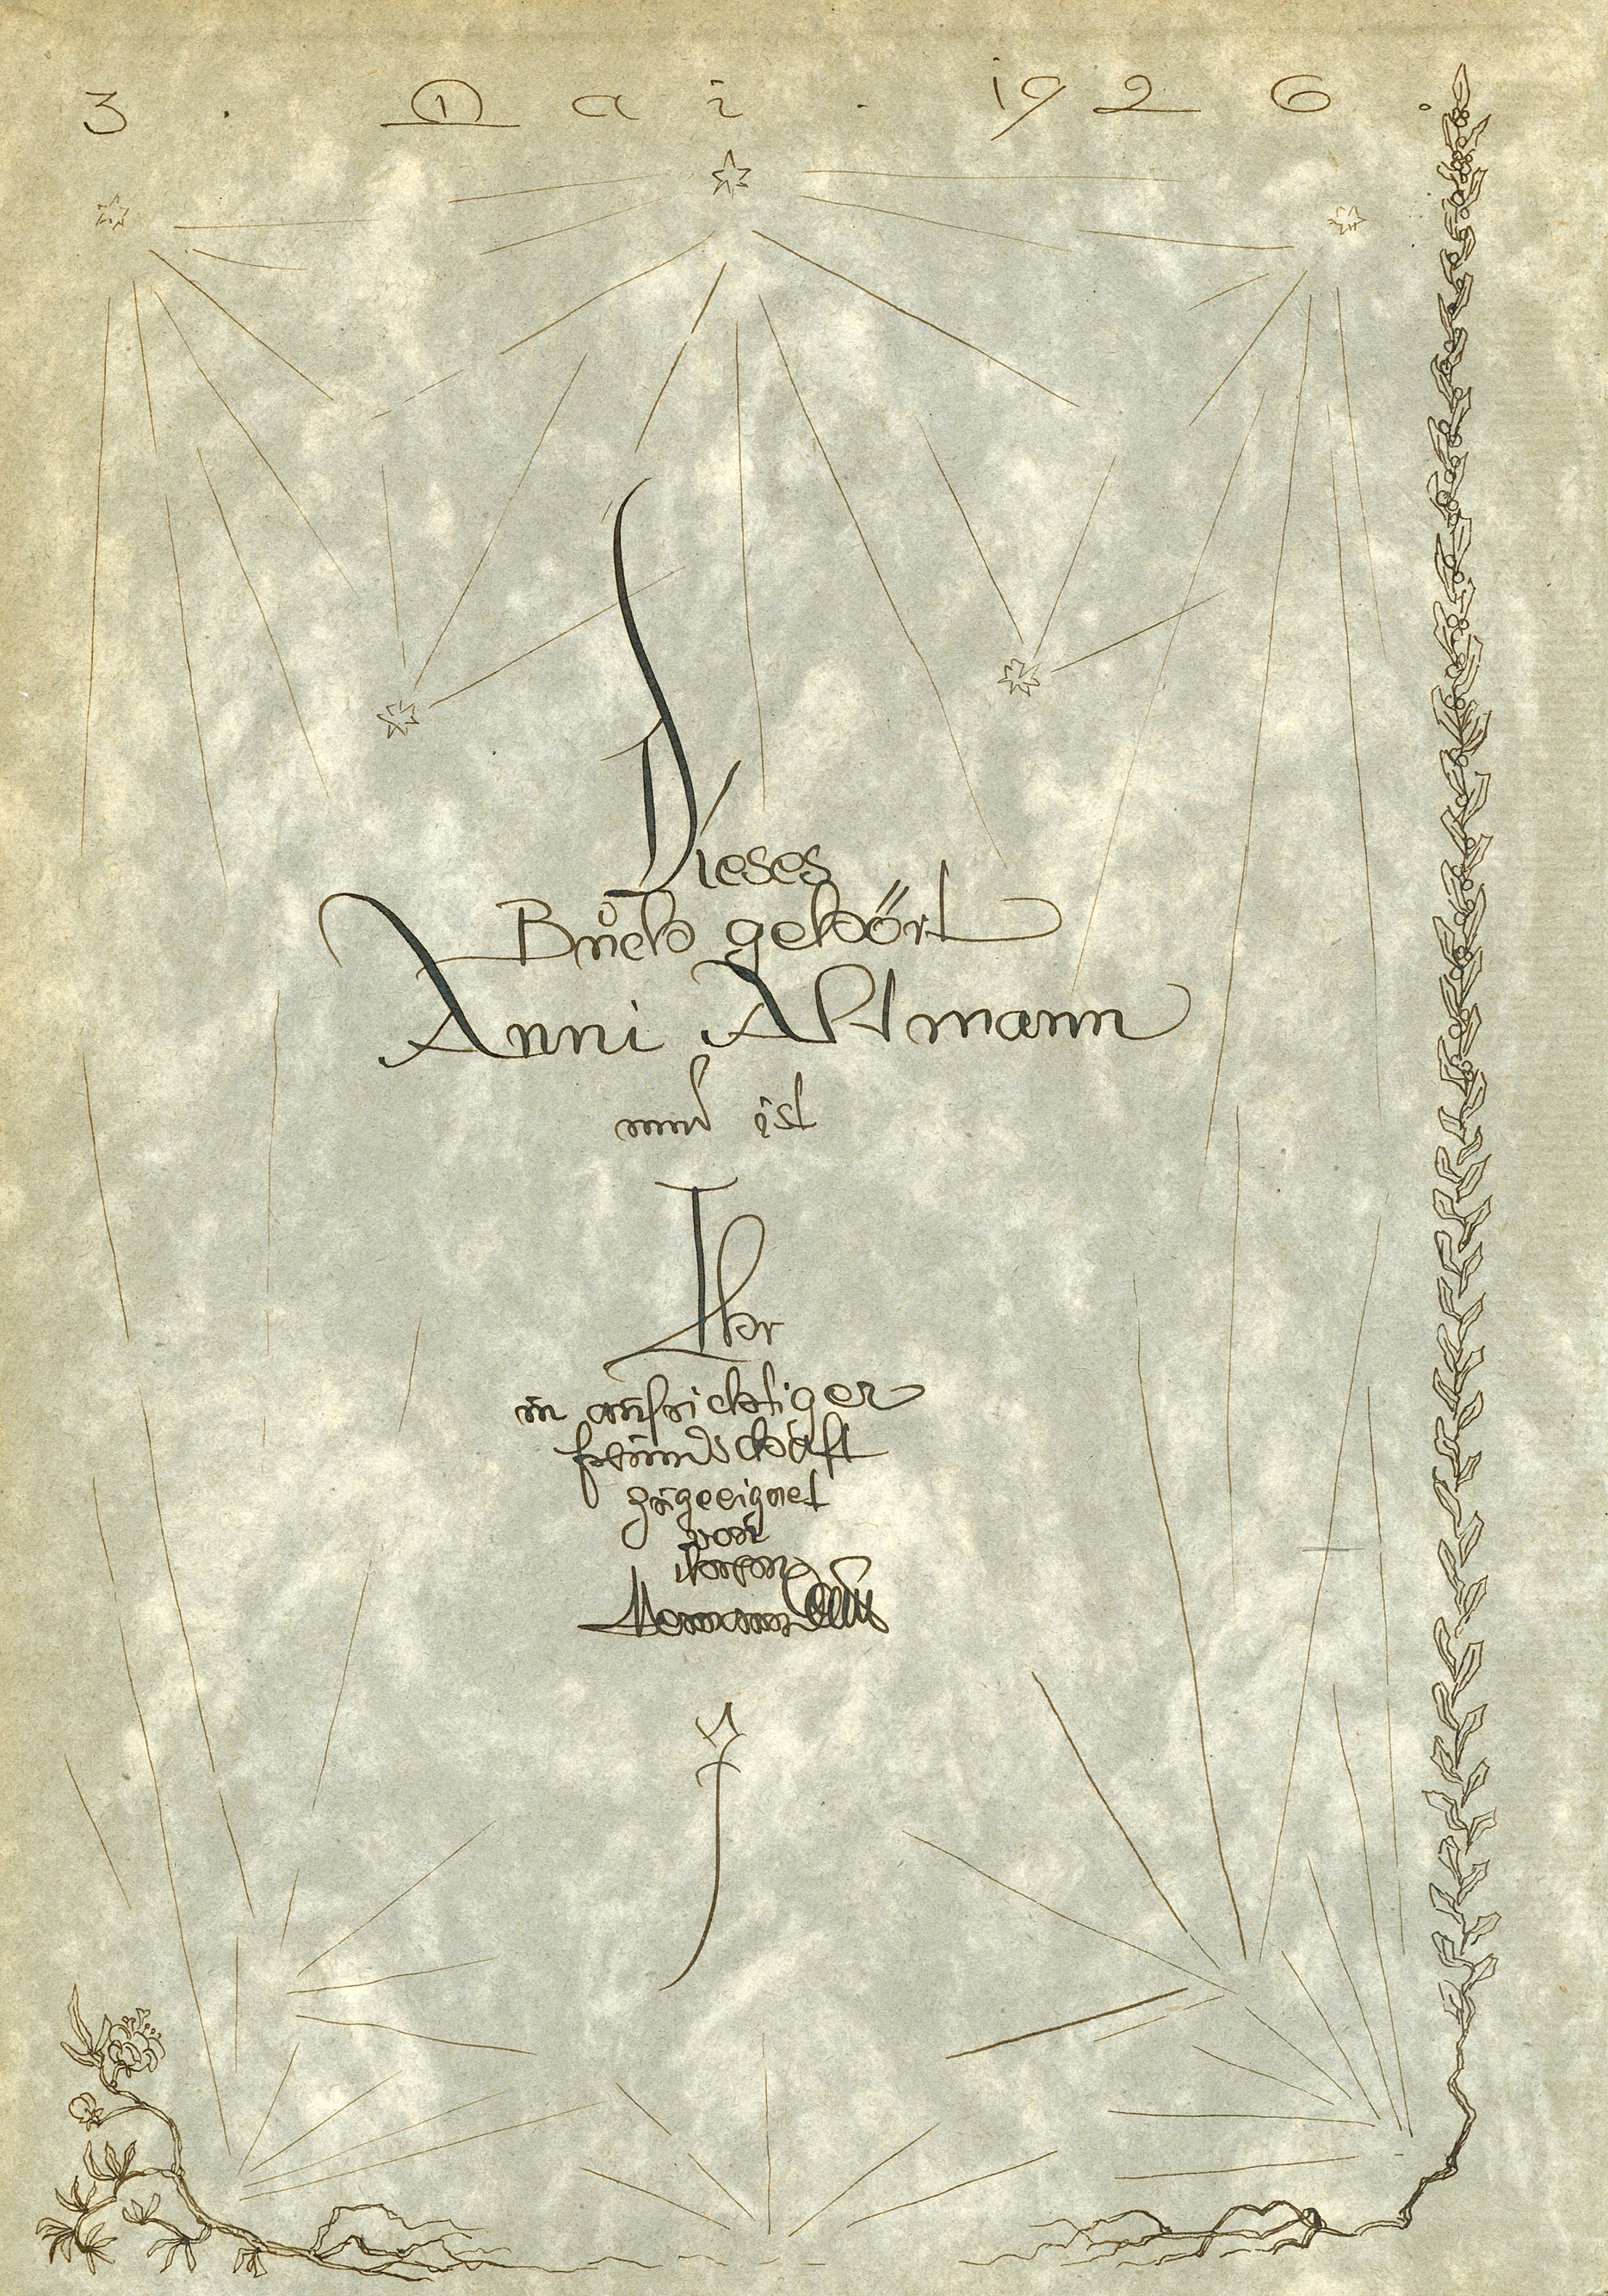 3. Mai. 1926.
Dieses
Bůch gehört
Anni Altmann
und ist
Ihr
in aufrichtiger
freundschaft
zugeeignet
von
ihrem
Hermann